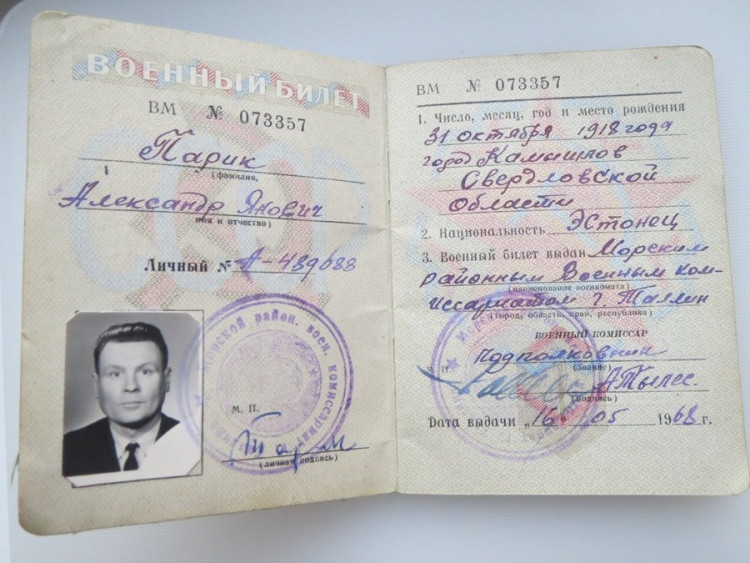 ВОЕННЫЙ БИЛЕТ
ВМ № 073357
Парик
(фамилия,
Александр Янович
имя и отчество)
Личный № А-489688
М. П.
(личная подпись)
ВМ № 073357
1. Число, месяц, год и место рождения
31 октября 1918 года
город Камышлов
Свердловской
области
2. Национальность Эстонец
3. Военный билет выдан Морским
районным Военным ком-
(наименование военкомата)
иссариатом г. Таллин
(город, область, край, республика)
ВОЕННЫЙ КОМИССАР
подполковник
М. П. (звание)
(подпись)
Дата выдачи „16" 05 1968 г.